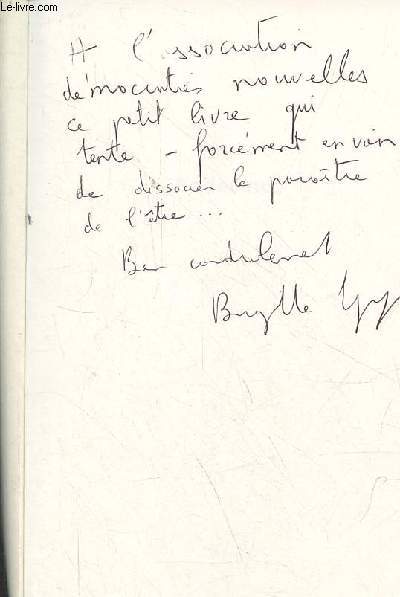 Le-livre.com
A l'association
démocraties nouvelles
ce petit livre qui
tente - forcément en vain
de dissocier le paraître
de l'être ...
Bien cordialement